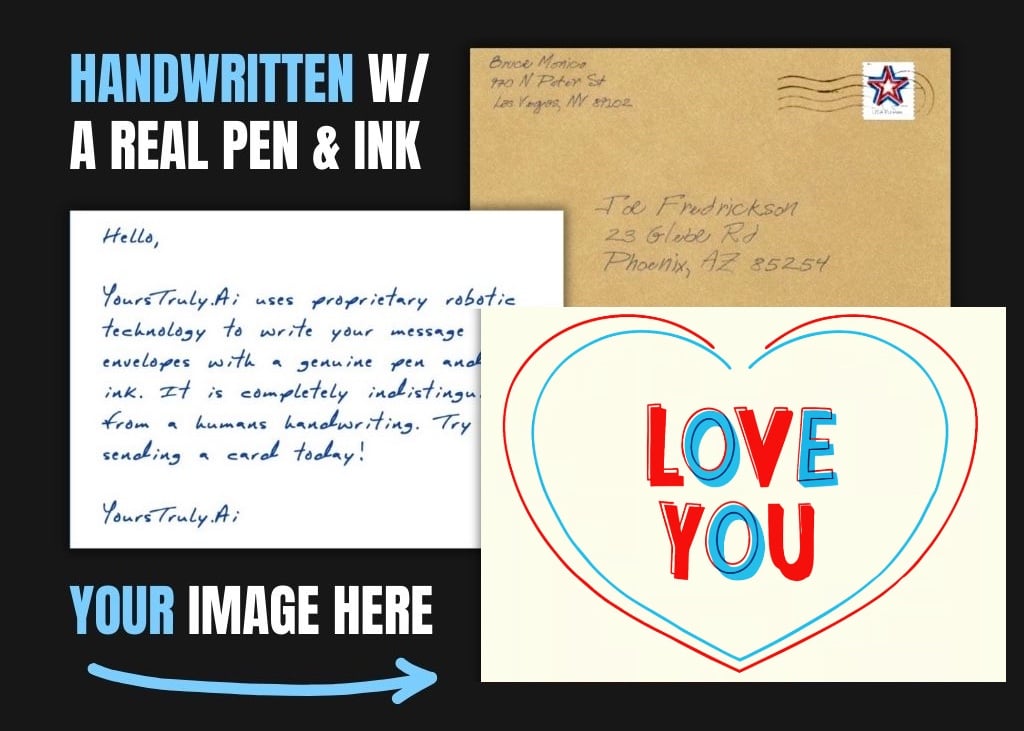 HANDWRITTEN W/
A REAL PEN & INK
Bruce Monica
970 N Peter St
Las Vegas, NV 89102
Joe Fredrickson
23 Globe Rd
Phoenix, AZ 85254
Hello,
YoursTruly.Ai uses proprietary robotic
technology to write your message
envelopes with a genuine pen and
ink. It is completely indistingu
from a humans handwriting. Try
sending a card today!
YoursTruly.Ai
LOVE
YOU
YOUR IMAGE HERE